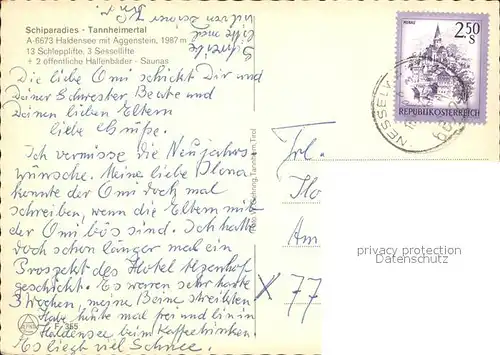 Schiparadies - Tannheimertal
A-6673 Haldensee mit Aggenstein, 1987 m
13 Schlepplifte, 3 Sessellifte
+ 2 öffentliche Hallenbäder - Saunas
Schreibe
bitte mal
Die liebe Omi schickt Dir und
Deiner Schwester Beate und
Deinen lieben Eltern
liebe Grüße.
Ich vermisse die Neujahrs
wünsche. Meine liebe Ilona
konnte der Omi doch mal
schreiben, wenn die Eltern mit
der Omi bös sind. Ich hatte
doch schon länger mal ein
Prospekt des Hotel
geschickt. Es waren sehr harte
3 Wochen, meine Beine streikten
Habe heute mal frei und bin in
Haldensee beim Kaffeetrinken
Es liegt viel Schnee.
F. 355
Tannheim, Tirol
MURAU
2.50
S
REPUBLIK ÖSTERREICH
NESSELW
Frl.
Ilo
Am
77
privacy protection
Datenschutz